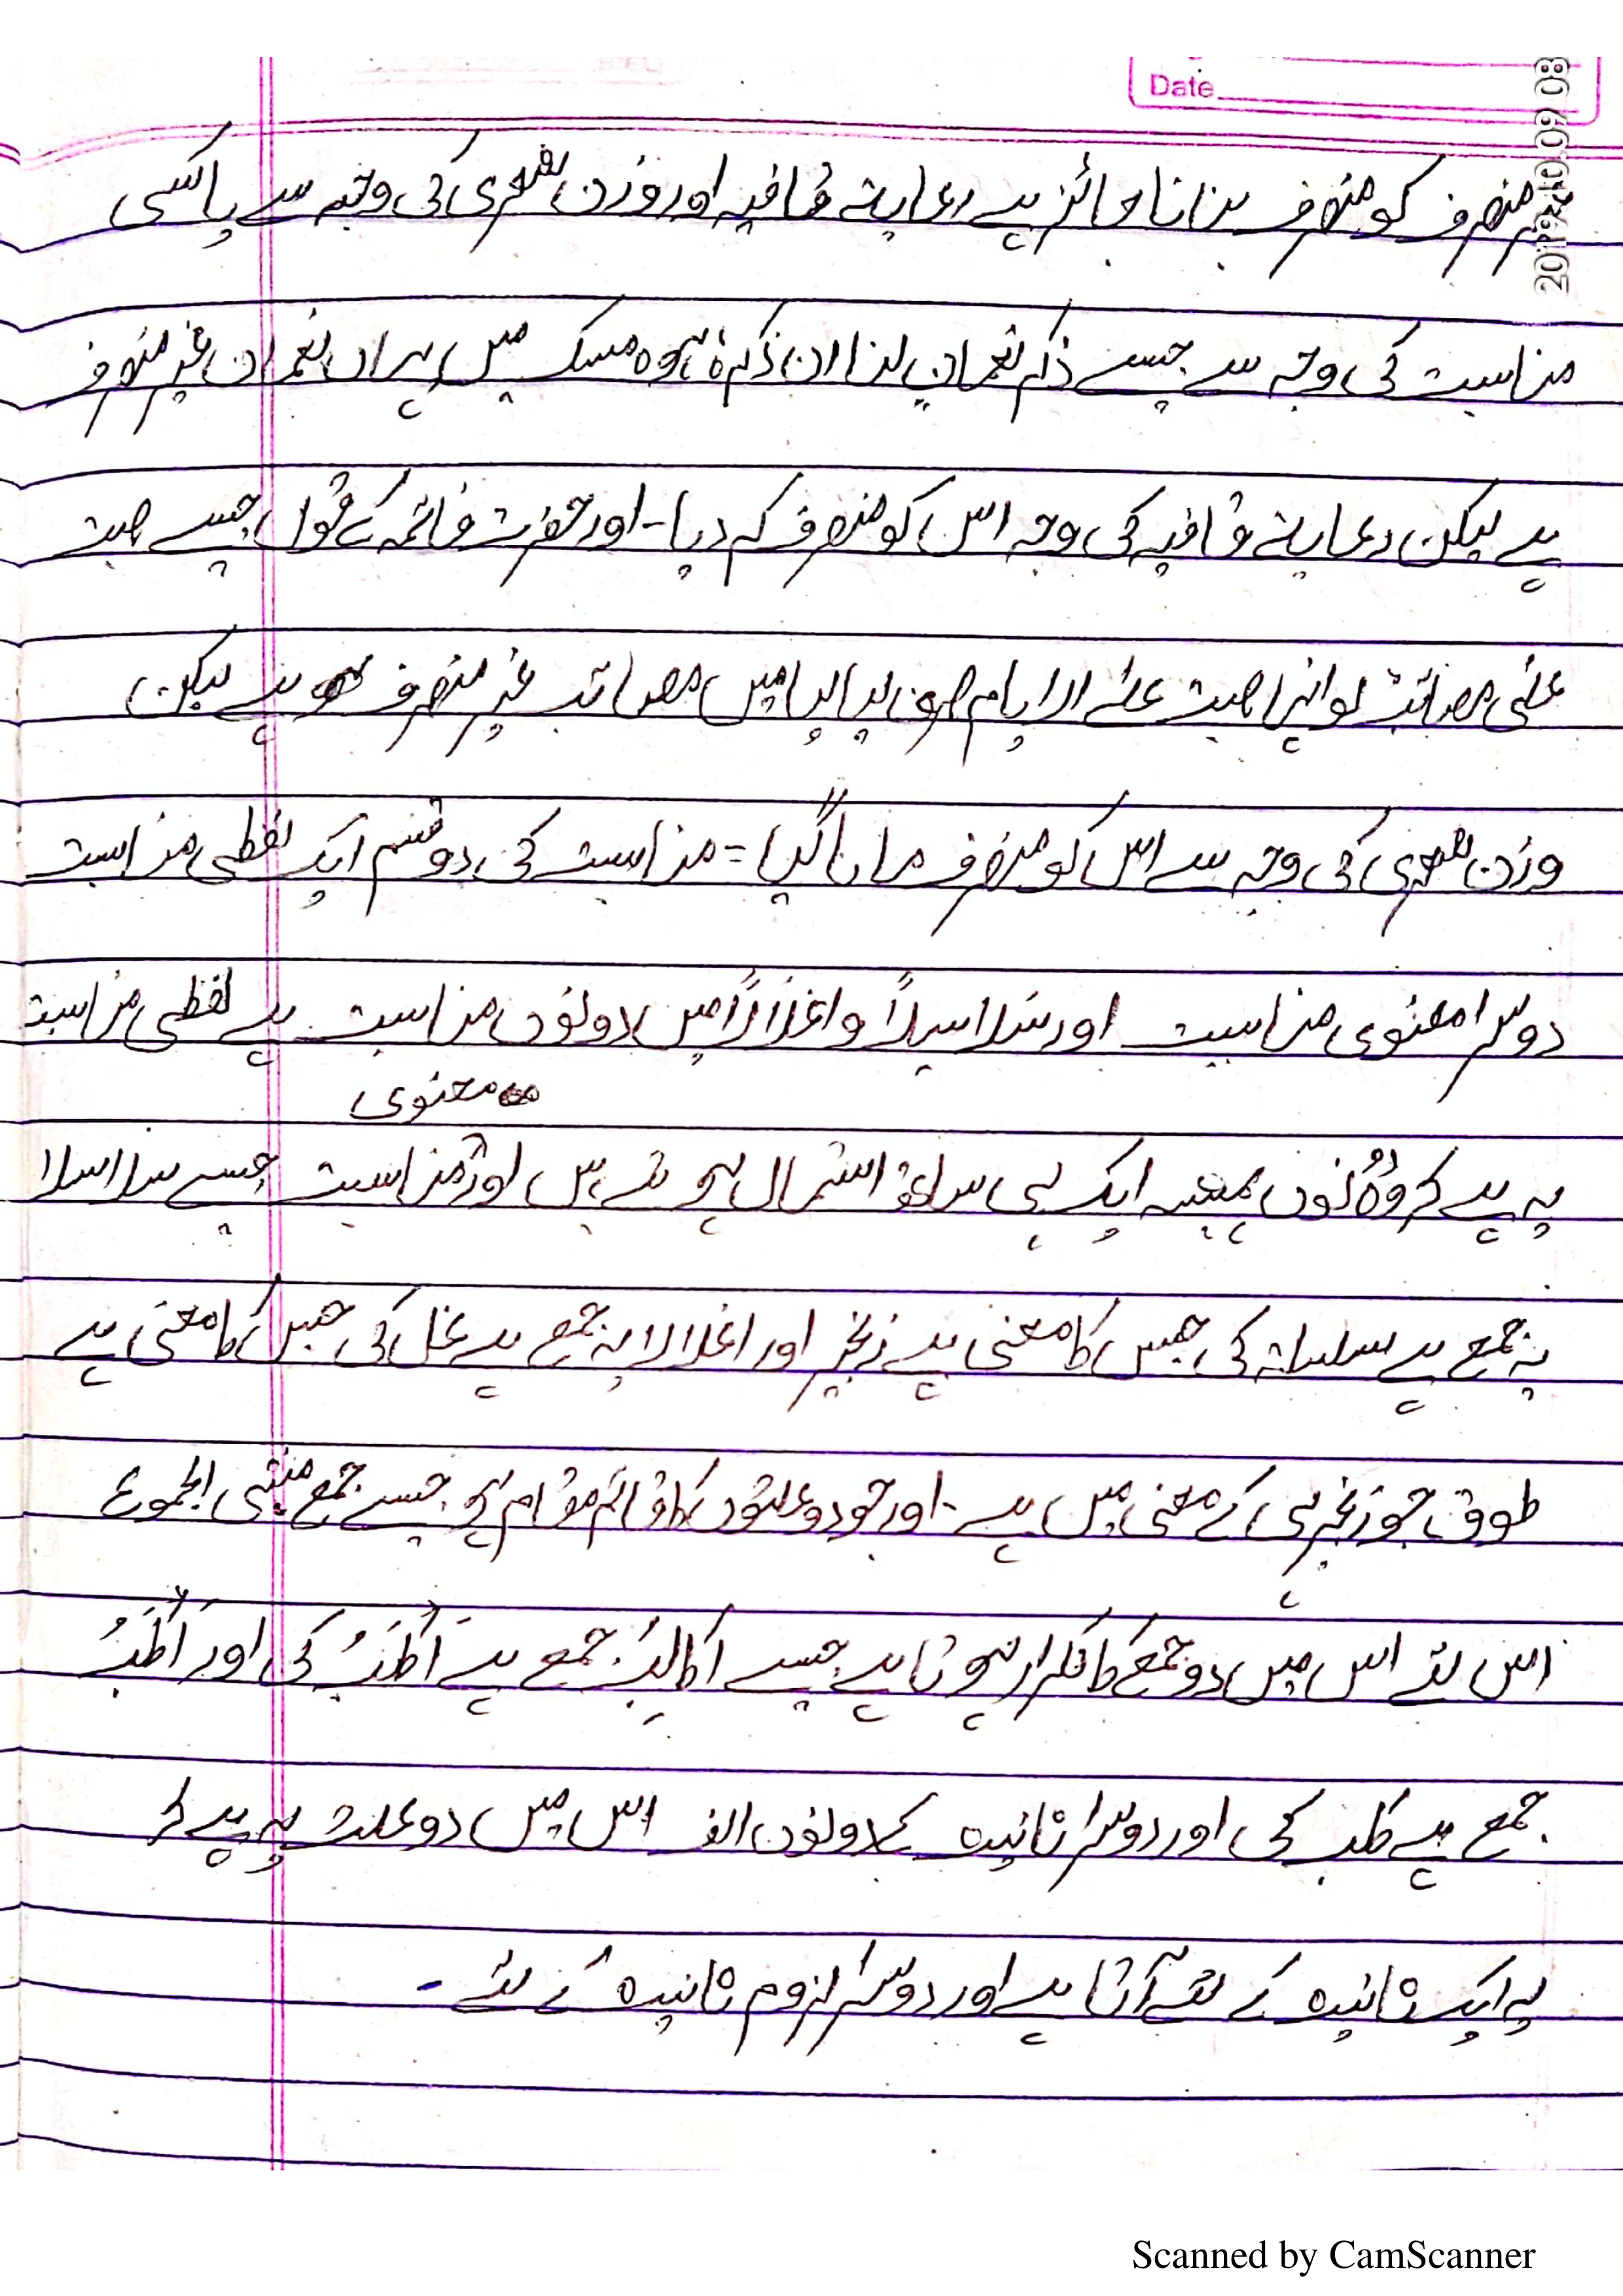 Date
2019.10.09 08
غیر منصرف کو منصرف بنانا جائز ہے رعایۃ قافیہ اور وزن شعری کی وجہ سے یا کسی
مناسبت کی وجہ سے جیسے ذکر نعمان لنا ان ذکرہ ہو مسک میں یہاں نعمان غیر منصرف
ہے لیکن رعایۃ قافیہ کی وجہ اس کو منصرف کر دیا - اور حضرت فاطمہ کے قول جیسے صبت
علی مصائب لو انہا صبت علی الایام صرن لیالیا میں مصائب غیر منصرف ہے لیکن
وزن شعری کی وجہ سے اس کو منصرف مانا گیا = مناسبت کی دو قسم ایک لفظی مناسبت
دوسرا معنوی مناسبت اور سلاسلاً واغلالاً میں دونوں مناسبت ہے لفظی مناسبت
معنوی
یہ ہے کہ وہ دونوں ہمیشہ ایک ہی ساتھ استمال ہوتے ہیں اور مناسبت جیسے سلاسلا
یہ جمع ہے سلسلۃ کی جس کا معنی ہے زنجیر اور اغلالا یہ جمع ہے غل کی جس کا معنی ہے
طوق جو زنجیر ہی کے معنی میں ہے - اور جو دو علتوں کا قائم مقام ہو جیسے جمع منتہی الجموع
اس لئے اس میں دو جمع کا تکرار ہوتا ہے جیسے اکالبُ جمع ہے اَکْلَبُ کی اور اَکْلَبُ
جمع ہے کلب کی اور دوسرا تانیث کے دونوں الف اس میں دو علت یہ ہے کہ
یہ ایک تانیث کے لئے آتا ہے اور دوسرا لزوم تانیث کے لئے -
Scanned by CamScanner